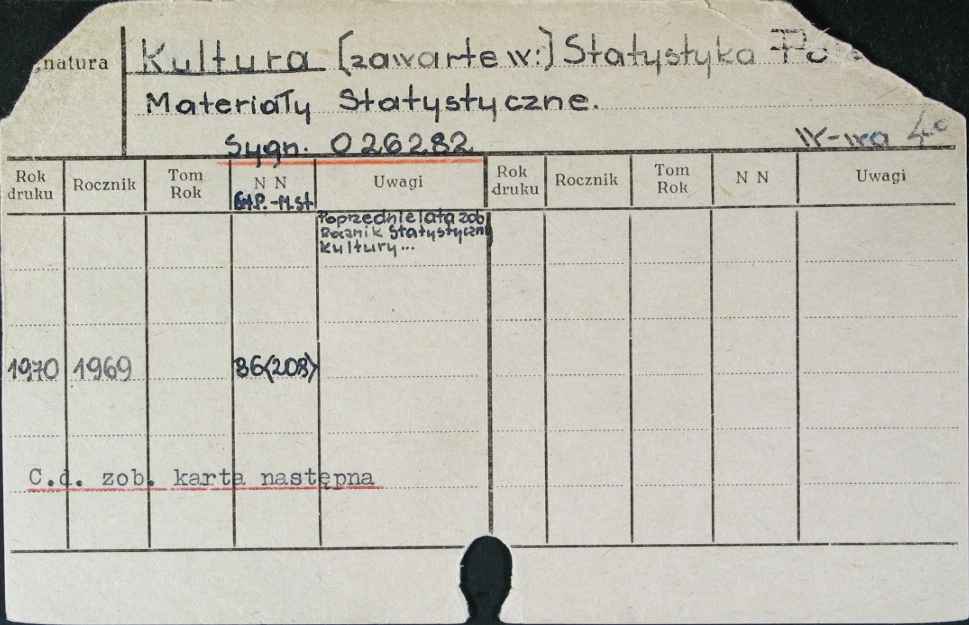 natura Kultura (zawarte w:) Statystyka
Materiały Statystyczne.
Sygn. 026282
Rok druku Rocznik Tom Rok N N Uwagi Rok druku Rocznik Tom Rok N N Uwagi
St.P.-M.St
Poprzednie lata zob
Rocznik Statystyczn
Kultury...
1970 1969 86(208)
C.d. zob. karta następna